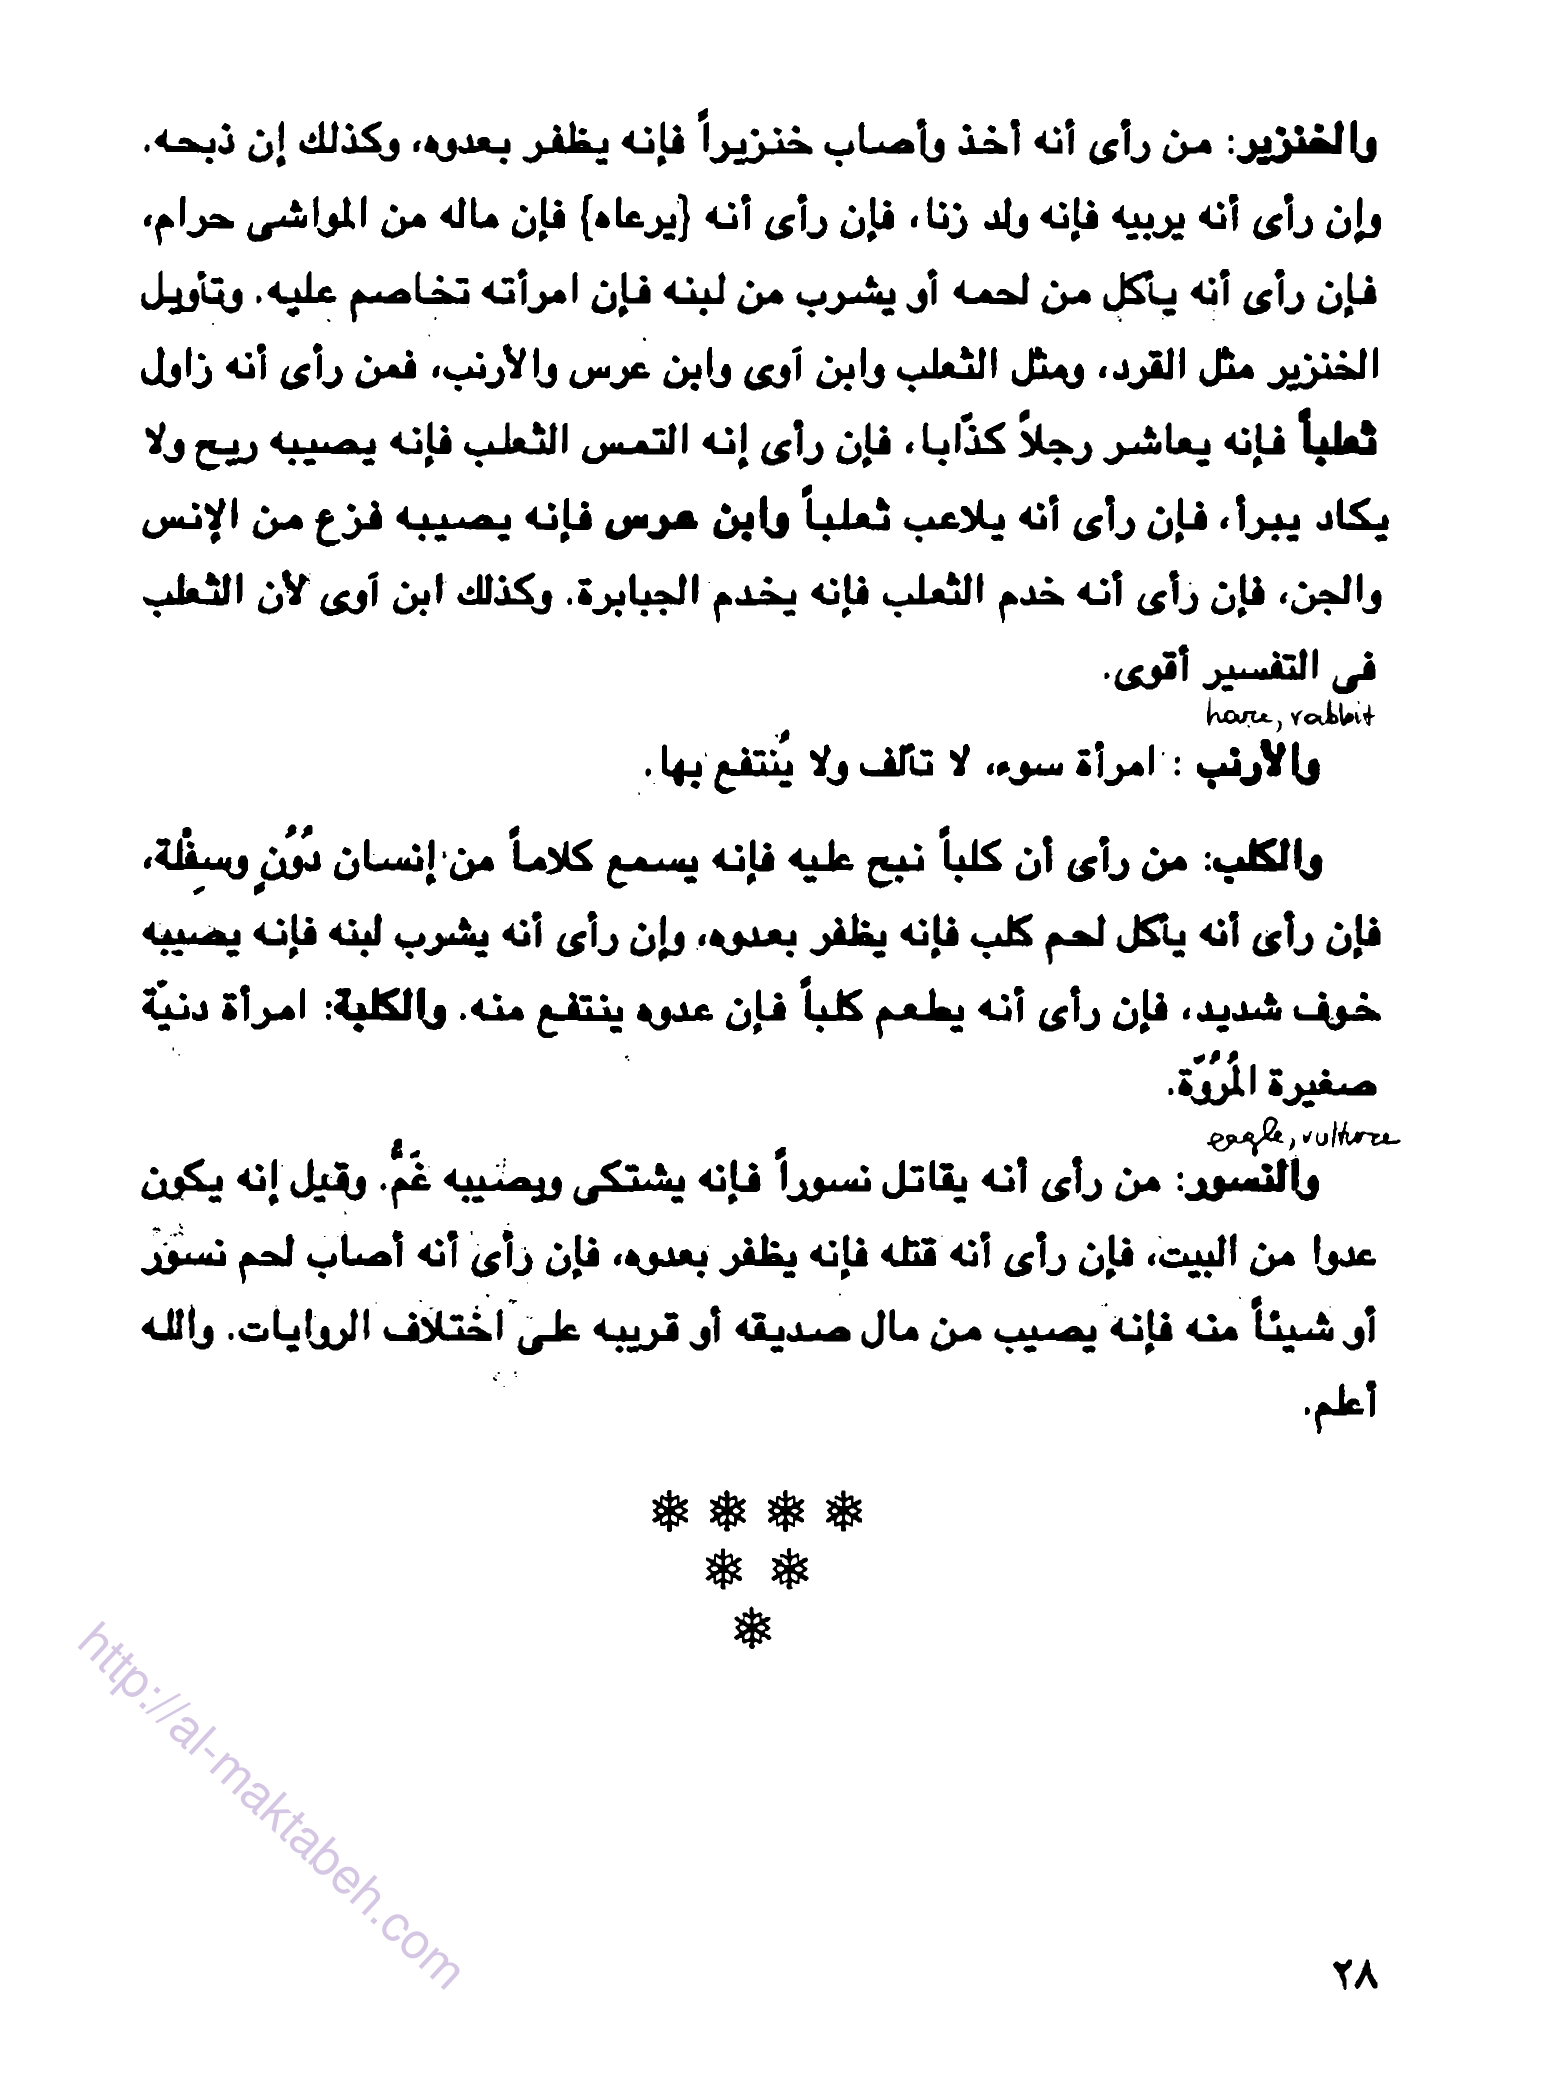 والخنزير: من رأى أنه أخذ وأصاب خنزيراً فإنه يظفر بعدوه، وكذلك إن ذبحه.
وإن رأى أنه يربيه فإنه ولد زنا، فإن رأى أنه {يرعاه} فإن ماله من المواشى حرام،
فإن رأى أنه يأكل من لحمه أو يشرب من لبنه فإن امرأته تخاصم عليه. وتأويل
الخنزير مثل القرد، ومثل الثعلب وابن آوى وابن عرس والأرنب، فمن رأى أنه زاول
ثعلباً فإنه يعاشر رجلاً كذّابا، فإن رأى إنه التمس الثعلب فإنه يصيبه ريح ولا
يكاد يبرأ، فإن رأى أنه يلاعب ثعلباً وابن عرس فإنه يصيبه فزع من الإنس
والجن، فإن رأى أنه خدم الثعلب فإنه يخدم الجبابرة. وكذلك ابن آوى لأن الثعلب
فى التفسير أقوى.
hare, rabbit
والأرنب : امرأة سوء، لا تألف ولا يُنتفع بها.
والكلب: من رأى أن كلباً نبح عليه فإنه يسمع كلاماً من إنسان دُوُنٍ وسِفْلة،
فإن رأى أنه يأكل لحم كلب فإنه يظفر بعدوه، وإن رأى أنه يشرب لبنه فإنه يصيبه
خوف شديد، فإن رأى أنه يطعم كلباً فإن عدوه ينتفع منه. والكلبة: امرأة دنيّة
صغيرة المُرُوّة.
eagle, vulture
والنسور: من رأى أنه يقاتل نسوراً فإنه يشتكى ويصيبه غَمٌّ. وقيل إنه يكون
عدوا من البيت، فإن رأى أنه قتله فإنه يظفر بعدوه، فإن رأى أنه أصاب لحم نسور
أو شيئاً منه فإنه يصيب من مال صديقه أو قريبه على اختلاف الروايات. والله
أعلم.
http://al-maktabeh.com
٢٨